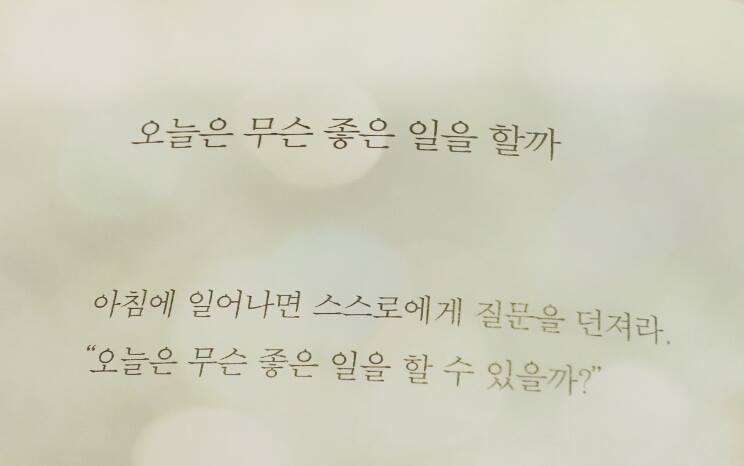 오늘은 무슨 좋은 일을 할까
아침에 일어나면 스스로에게 질문을 던져라.
“오늘은 무슨 좋은 일을 할 수 있을까?”